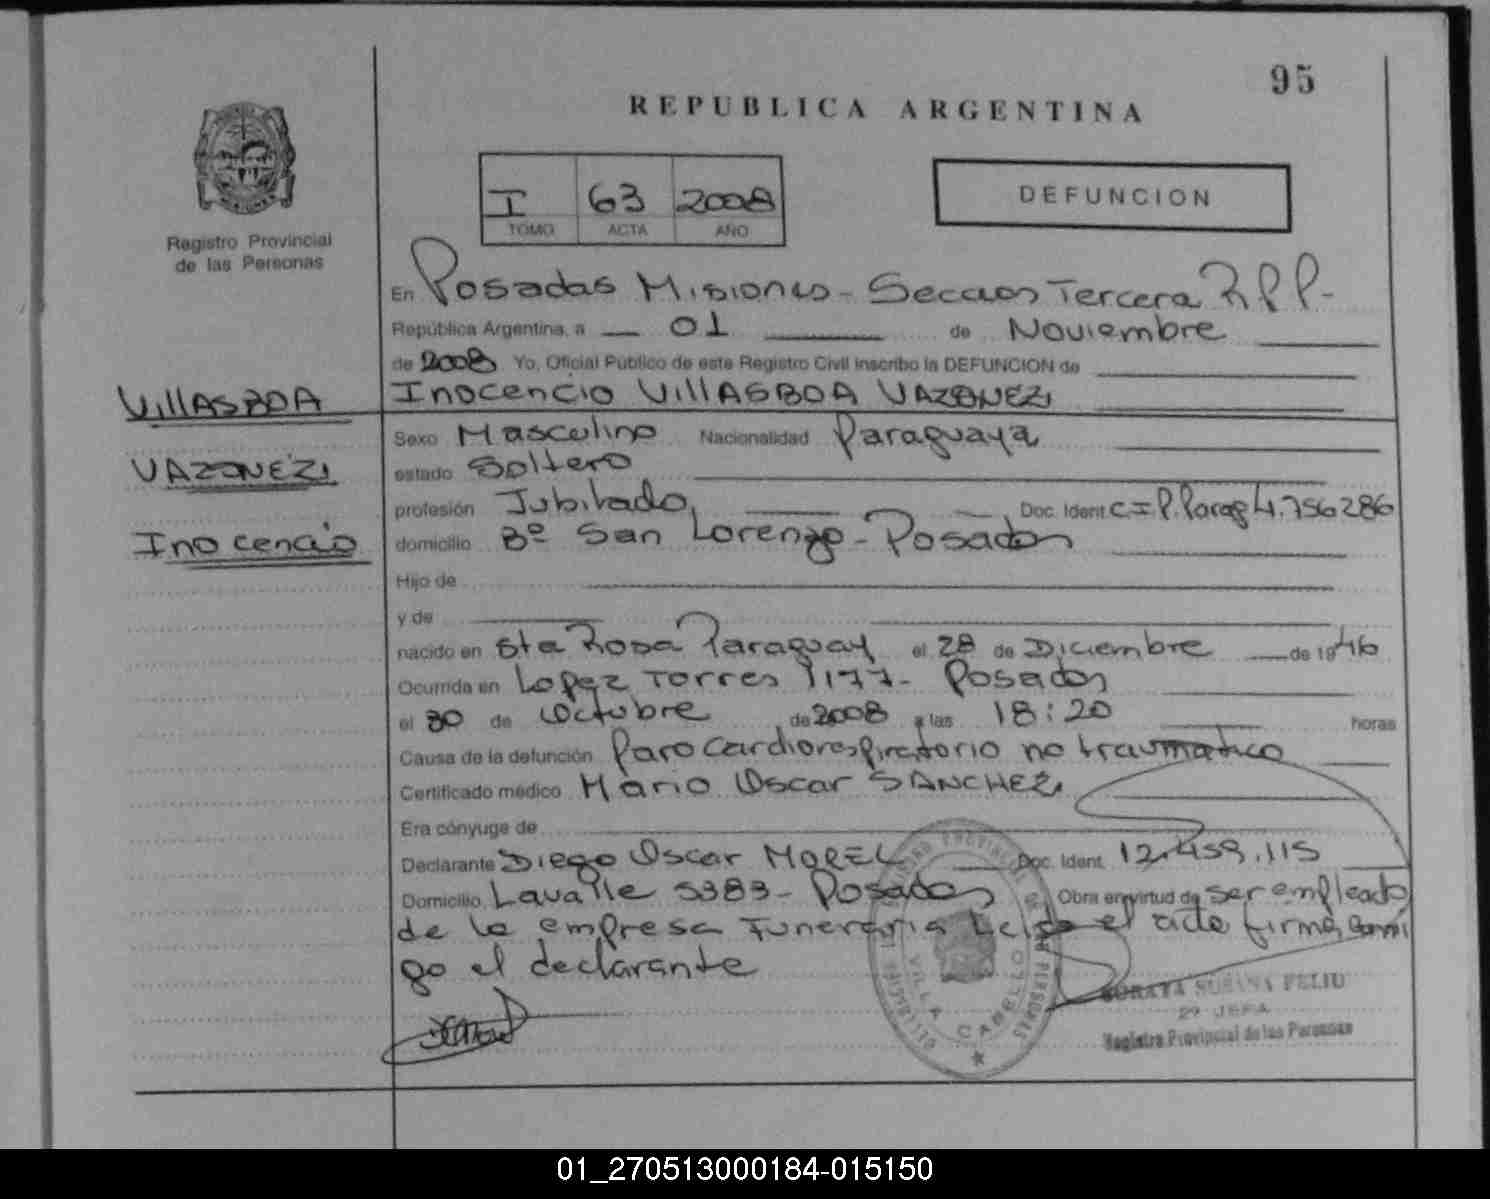 95
REPUBLICA ARGENTINA
I 63 2008
TOMO ACTA AÑO
DEFUNCION
Registro Provincial
de las Personas
En Posadas Misiones - Seccion Tercera R P P -
República Argentina, a 01 de Noviembre
de 2008 Yo, Oficial Público de este Registro Civil inscribo la DEFUNCION de
Inocencio VILLASBOA VAZQNEZ
VILLASBOA
VAZQNEZ
Inocencio
Sexo Masculino Nacionalidad Paraguaya
estado Soltero
profesión Jubilado Doc. Ident C.I.P. Parag 4.756286
domicilio Bº San Lorenzo - Posadas
Hijo de
y de
nacido en Sta Rosa Paraguay el 28 de Diciembre de 1946
Ocurrida en Lopez Torres 1177 - Posadas
el 30 de Octubre de 2008 a las 18:20 horas
Causa de la defunción Paro Cardiorespiratorio no traumatico
Certificado médico Mario Oscar SANCHEZ
Era cónyuge de
Declarante Diego Oscar MOREL Doc. Ident. 12.459.115
Domicilio Lavalle 5383 - Posadas Obra en virtud de ser empleado
de la empresa Funeraria Leida el acta firma conmi
go el declarante
VILLA CABELLO
SORAYA SUSANA FELIU
2º JEFA
Registro Provincial de las Personas
01_270513000184-015150